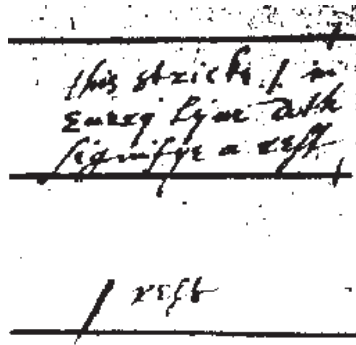 this stricke / in
Euery lyne doth
signifye a rest
rest